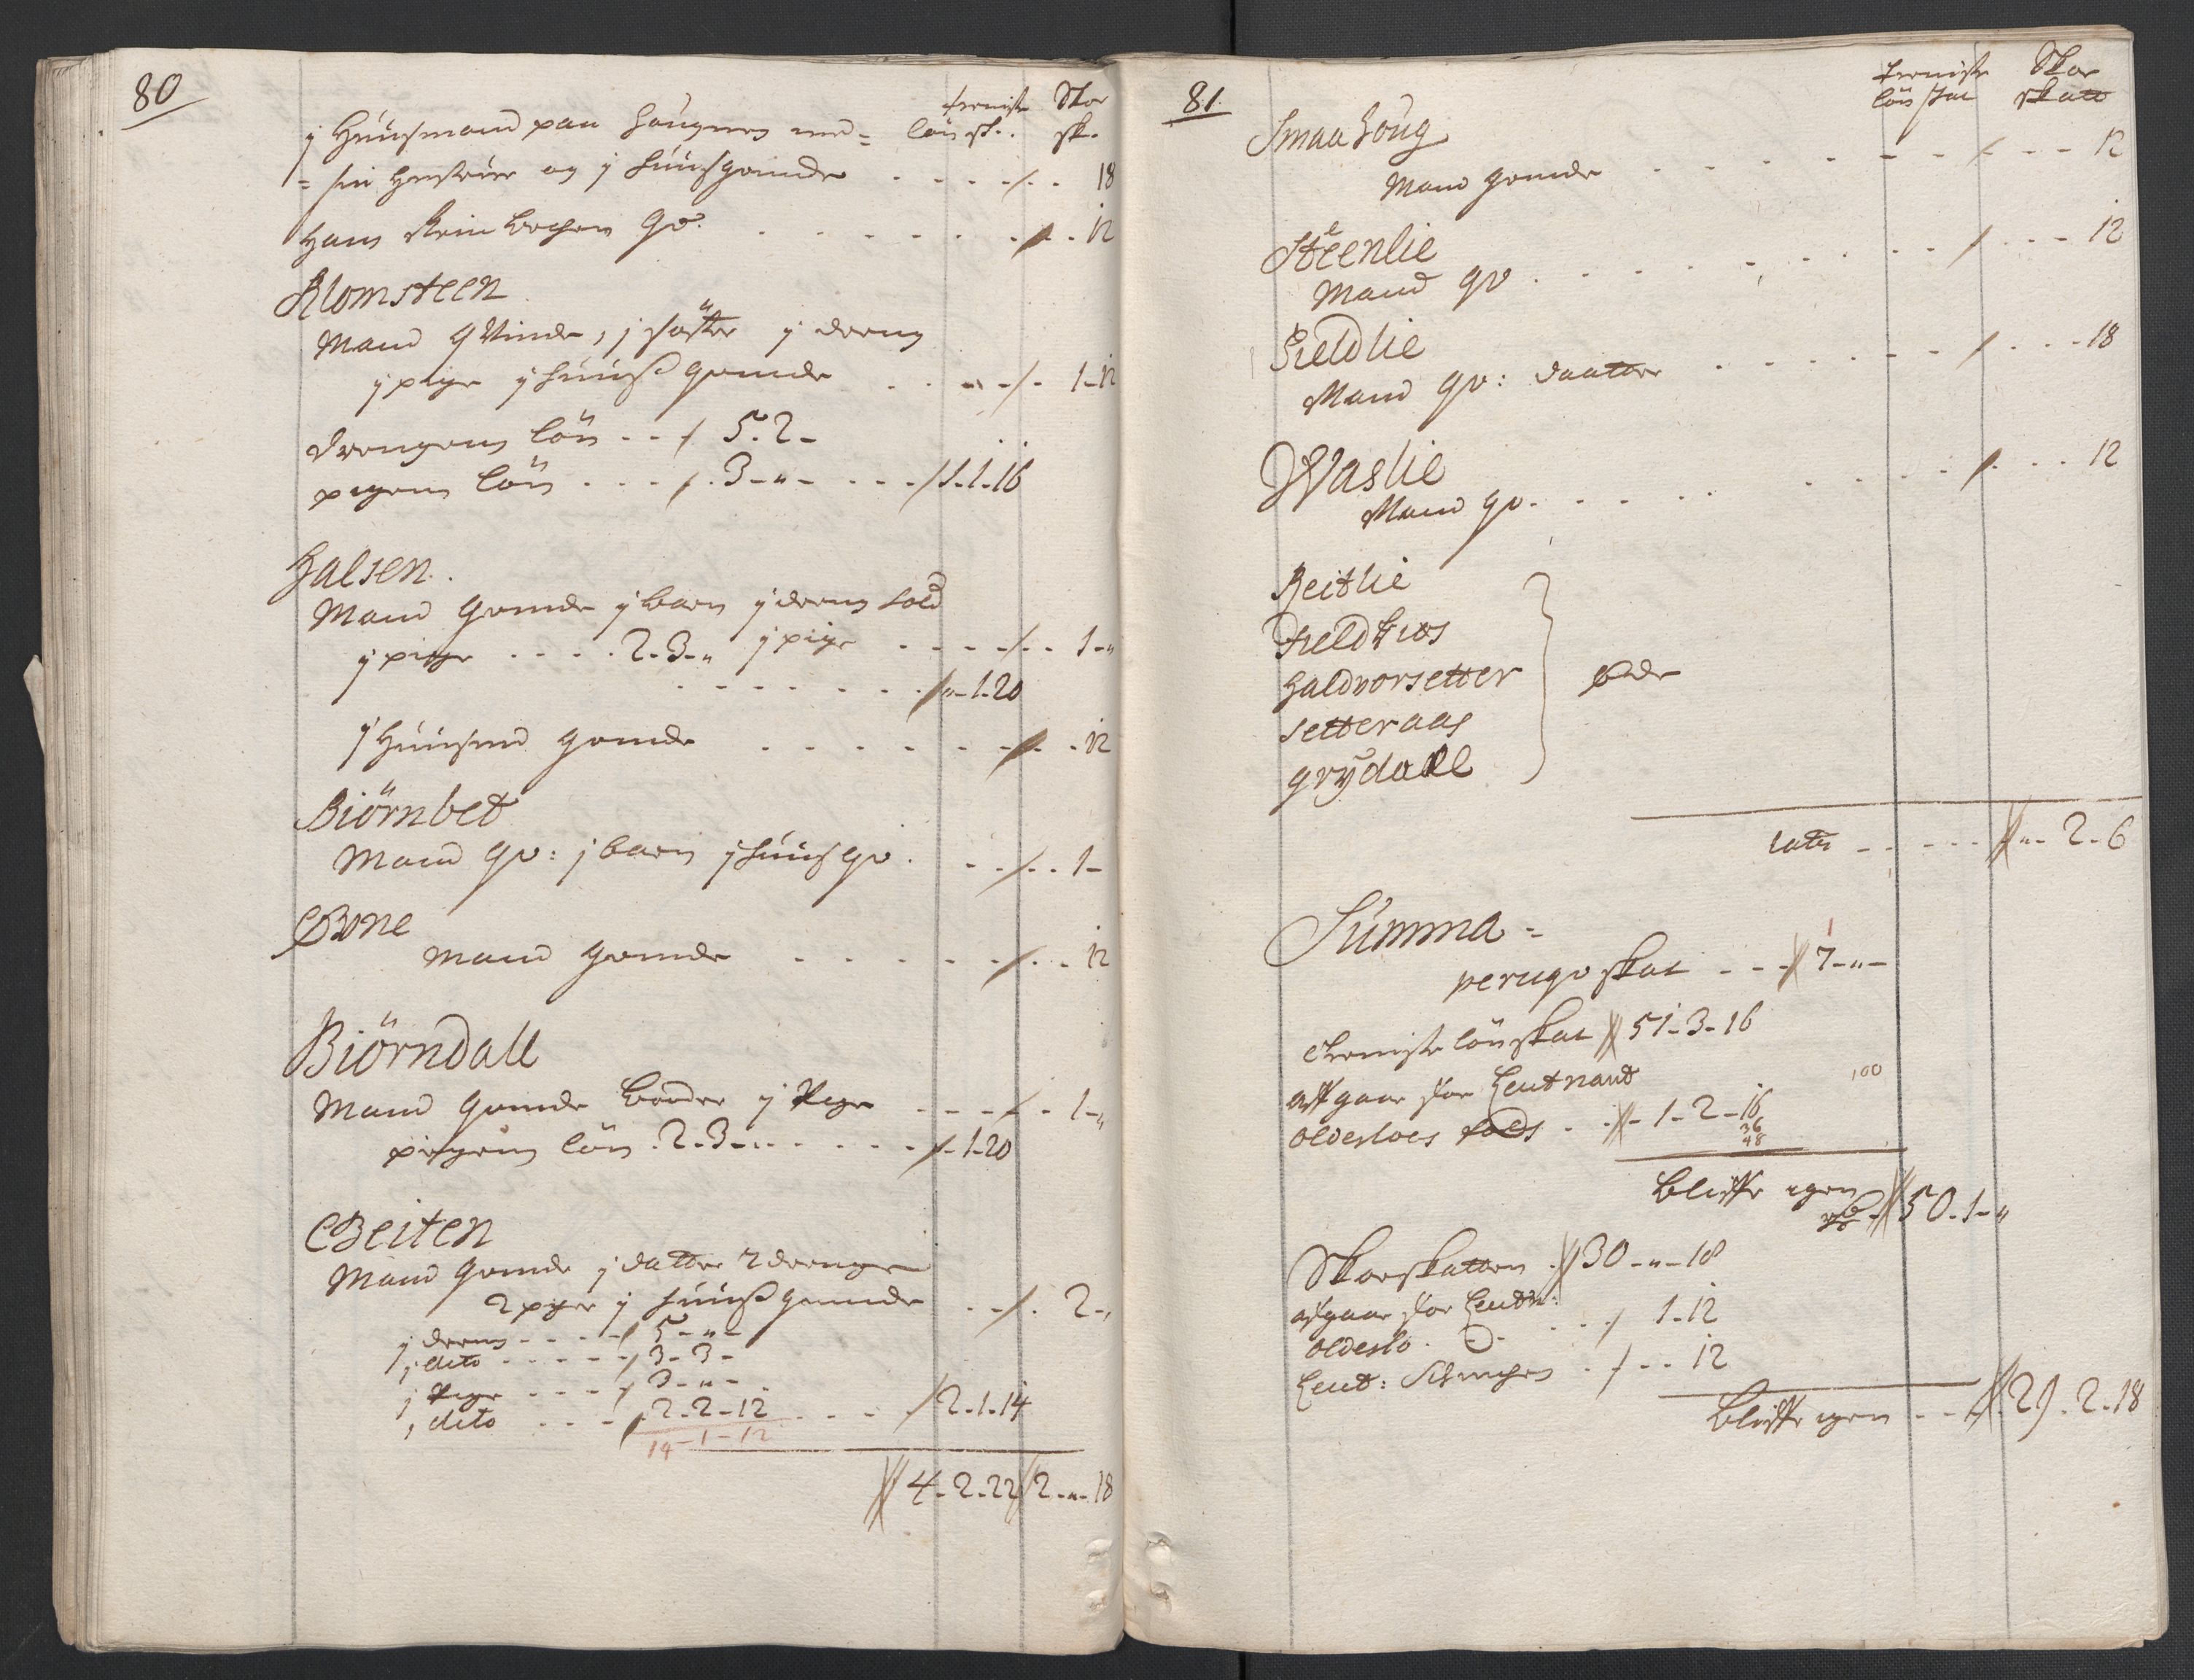 80
tieniste Skoe
lön sk. sk.
j Huusmand paa Haugnes med =
= sin Hustrue og j Huusqvinde - - - - / - - 18
Hans Steinbechen qv: - - - - - - / - - 12
Blomsteen
Mand qVinde, j söster j dreng
j pige j Huuss qvinde - - - - / - 1 - 12
drengens lön - - / 5. 2 -
pigens lön - - - / . 3 - „ - - - - / 1. 1. 16
Halsen.
Mand qvinde j barn j dreng sold
j pige - - - - . 2 - 3 - „ j pige - - - - / - - 1 - „
- - - - - - - / „ - 1. 20
j Huusmd qvinde - - - - - - / - - 12
Biörnbet
Mand qv: j barn j huusqv. - - / - - 1 -
Bone
Mand qvinde - - - - - / - - 12
Biörndall
Mand qvinde broder j Pige - - - - / - 1 - „
pigens lön . 2 - 3 - „ - - - - - / - 1 - 20
Beiten
Mand qvinde j datter 2 drenge
2 piger j Huuss qvinde - - / . 2 - „
j dreng - - - - / 5 - „ -
j dito - - - - - / 3 - 3 -
j Pige - - - - / 3 - „ -
j dito - - - / . 2 - 2 - 12 - - - - / 2 - 1 - 14
14 - 1 - 12
4 - 2 - 22 / 2 - „ - 18
81.
tieniste Skoe
lön skat skatt
Smaa Houg
Mand qvinde - - - - - - - / - - - 12
Steenlie
Mand qv - - - - - - - - / - - - 12
Fieldlie
Mand qv: daatter - - - - - - / - - - 18
Waslie
Mand qv. - - - - - - - / . - - 12
Beitlie
Haldvorsetter
Setteraas
Grÿdall
} øde
Latus - - - - - „ - 2 - 6
Summa =
perugv skat - - - 7 - „ -
tieniste lön skat 51 - 3 - 16
aff gaar for Leutnant
100
Oldesloes folds - - - 1 - 2 - 16
36
48
bliffr igen
50 - 1 - „
Skoeskatten . 30 - „ - 18
afgaar for Leutn:
Oldeslo. - - - - / 1 - 12
Leut: - / - - 12
bliffr igen - - . 29. 2 - 18